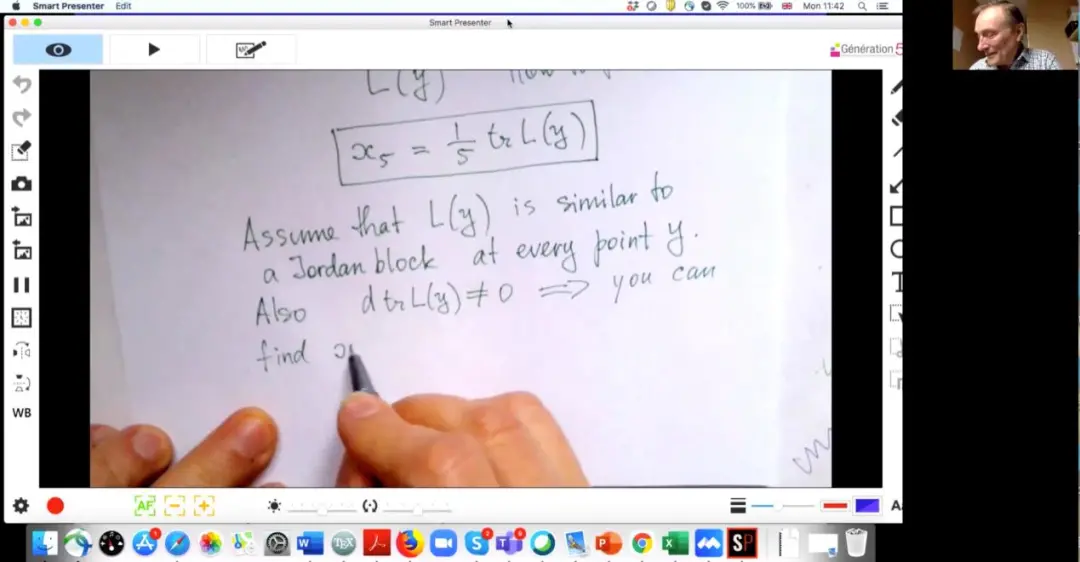 Smart Presenter Edit
100% Mon 11:42
Smart Presenter
Génération 5
L(y)
x₅ = 1/5 tr L(y)
Assume that L(y) is similar to
a Jordan block at every point y.
Also d tr L(y) ≠ 0 ⟹ you can
find x
WB
T
AF
A
W TEX S T P X SP